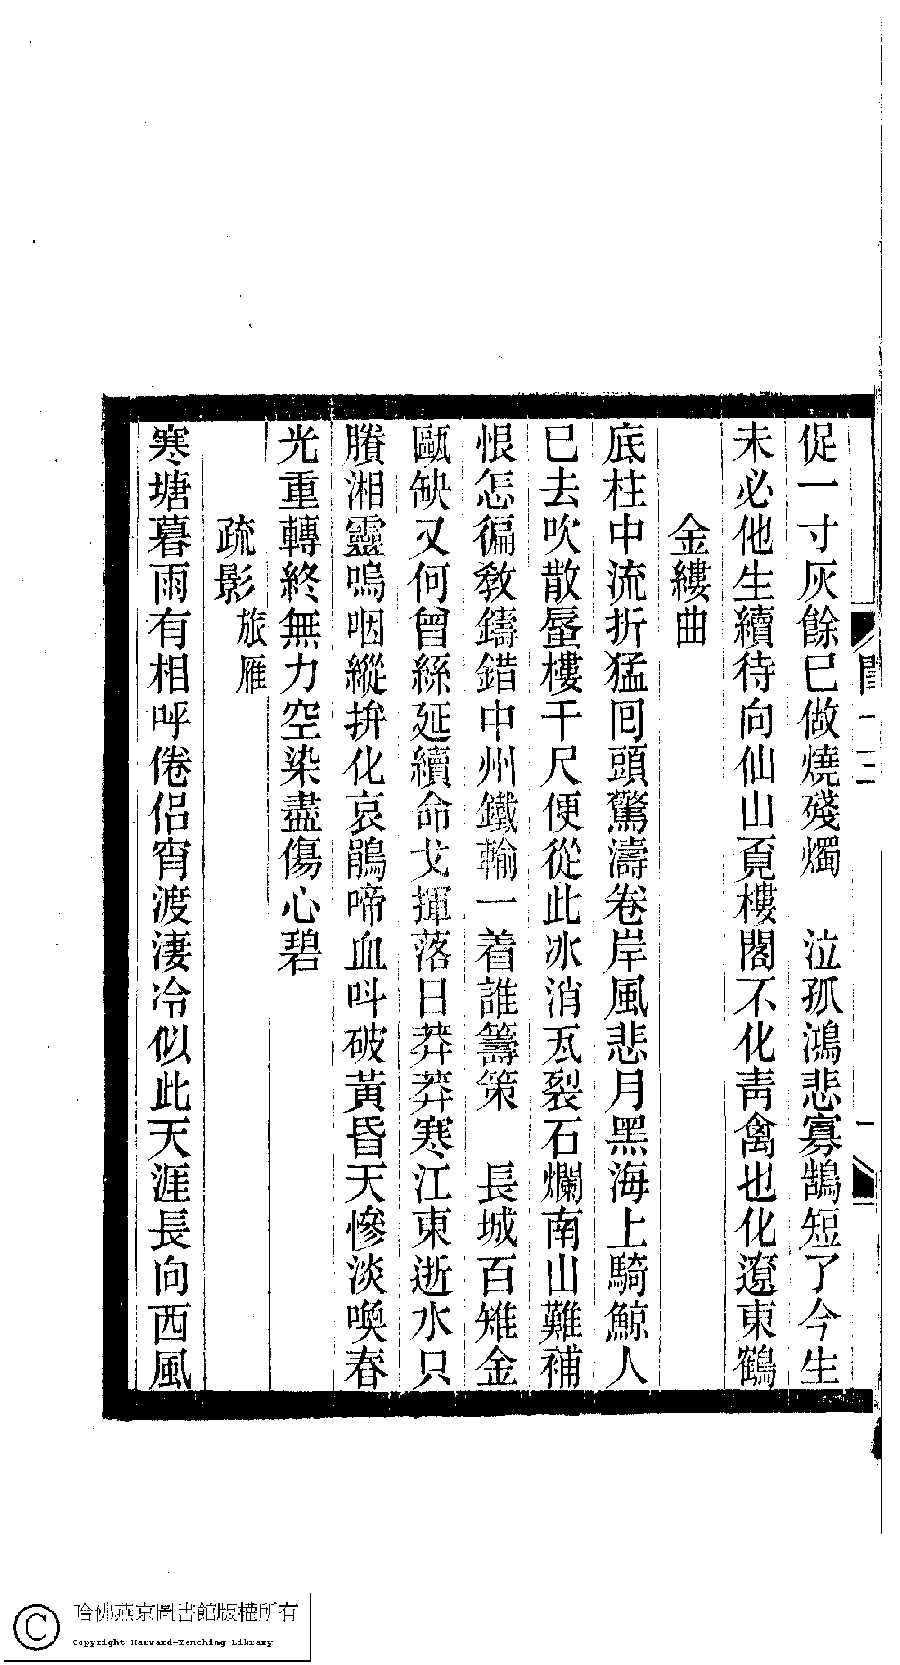 促一寸灰餘已做燒殘燭　泣孤鴻悲寡鵠短了今生
未必他生續待向仙山覓樓閣不化靑禽也化遼東鶴
金縷曲
底柱中流折猛囘頭驚濤卷岸風悲月黑海上騎鯨人
已去吹散蜃樓千尺便從此冰消瓦裂石爛南山難補
恨怎徧敎鑄錯中州鐵輸一着誰籌策　長城百雉金
甌缺又何曾絲延續命戈揮落日莽莽寒江東逝水只
賸湘靈嗚咽縱拚化哀鵑啼血呌破黃昏天慘淡喚春
光重轉終無力空染盡傷心碧
疏影 旅雁
寒塘暮雨有相呼倦侶宵渡淒冷似此天涯長向西風
哈佛燕京圖書館版權所有
Copyright Harvard-Yenching Library